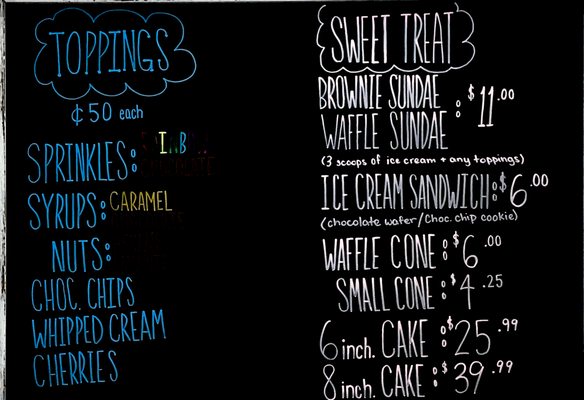 TOPPINGS
¢50 each
SPRINKLES: RAINBOW
CHOCOLATE
SYRUPS: CARAMEL
NUTS:
CHOC. CHIPS
WHIPPED CREAM
CHERRIES
SWEET TREAT
BROWNIE SUNDAE
WAFFLE SUNDAE : $11.00
(3 scoops of ice cream + any toppings)
ICE CREAM SANDWICH: $6.00
(chocolate wafer/Choc. chip cookie)
WAFFLE CONE : $6.00
SMALL CONE : $4.25
6 inch. CAKE : $25.99
8 inch. CAKE : $39.99